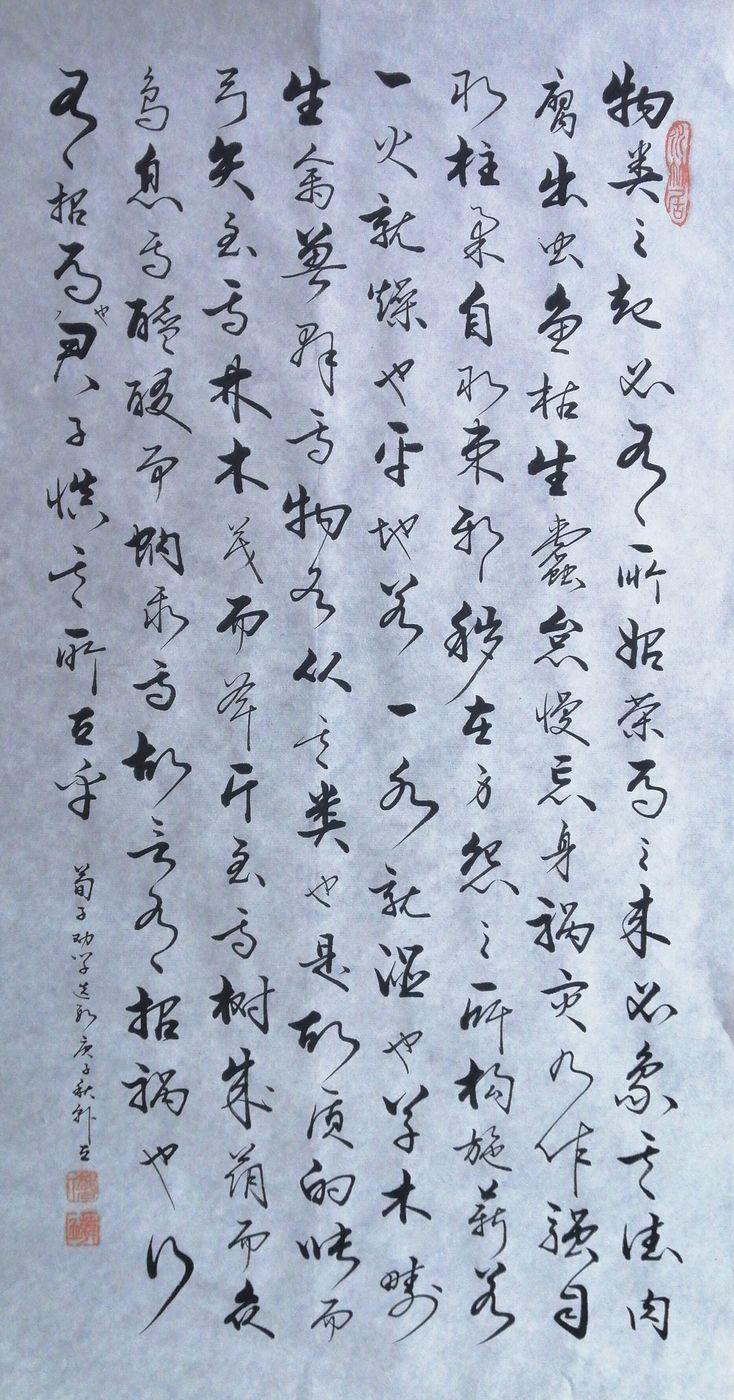 物类之起必有所始荣辱之来必象其德肉
腐出虫鱼枯生蠹怠慢忘身祸灾乃作强自
取柱柔自取束邪秽在身怨之所构施薪若
一火就燥也平地若一水就湿也草木畴
生禽兽群焉物各从其类也是故质的张而
弓矢至焉林木茂而斧斤至焉树成荫而众
鸟息焉醯酸而蚋聚焉故言有招祸也行
有招辱也君子慎其所立乎
荀子劝学选 庚子秋